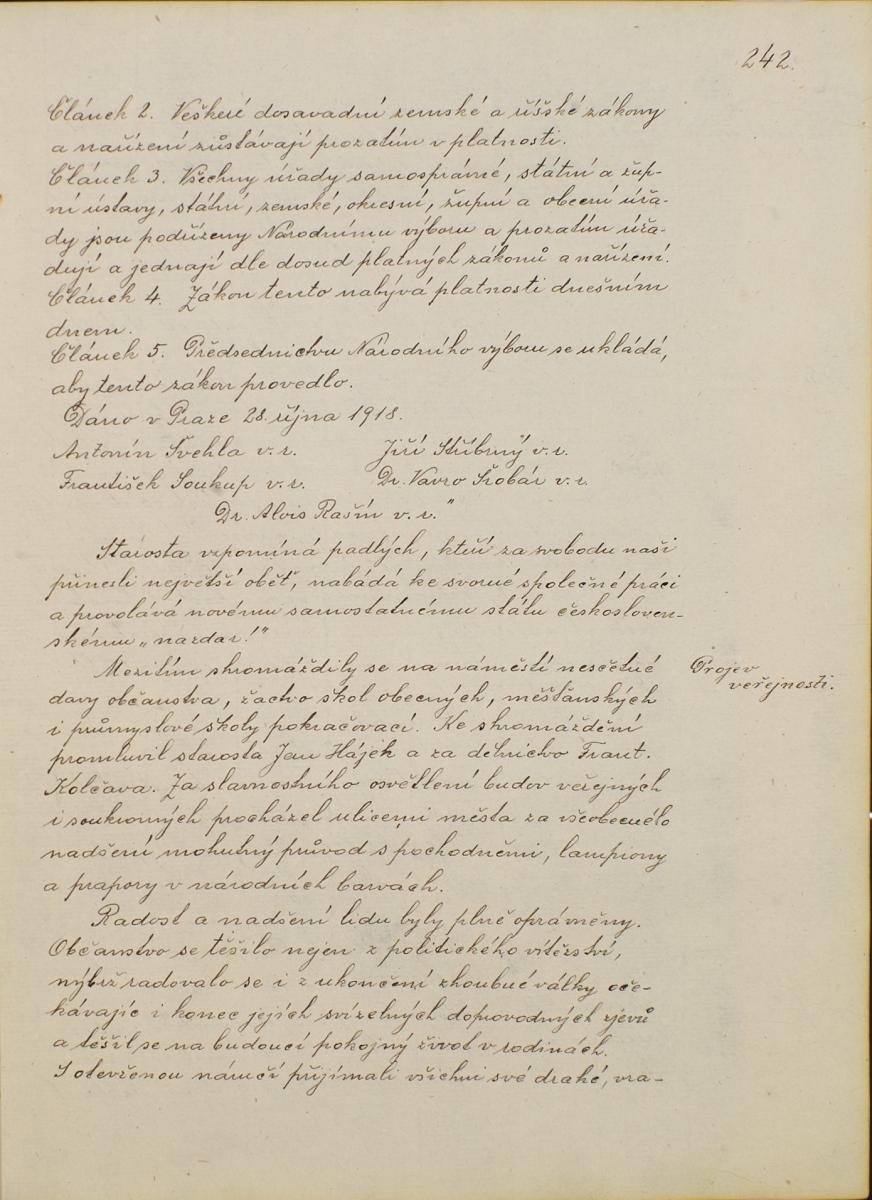 242.
Článek 2. Veškeré dosavadní zemské a říšské zákony
a nařízení zůstávají prozatím v platnosti.
Článek 3. Všechny úřady samosprávné, státní a žup-
ní ústavy, státní, zemské, okresní, župní a obecní úřa-
dy jsou podřízeny Národnímu výboru a prozatím úřa-
dují a jednají dle dosud platných zákonů a nařízení.
Článek 4. Zákon tento nabývá platnosti dnešním
dnem.
Článek 5. Předsednictvu Národního výboru se ukládá,
aby tento zákon provedlo.
Dáno v Praze 28. října 1918.
Antonín Švehla v. r. Jiří Stříbrný v. r.
František Soukup v. r. Dr. Vavro Šrobár v. r.
Dr. Alois Rašín v. r."
Starosta vzpomíná padlých, kteří za svobodu naši
přinesli největší oběť, nabádá ke svorné společné práci
a provolává novému samostatnému státu českosloven-
skému „nazdar!"
Mezitím shromáždily se na náměstí nesčetné
davy občanstva, žactvo škol obecných, měšťanských
i průmyslové školy pokračovací. Ke shromáždění
promluvil starosta Jan Hájek a za dělnictvo Frant.
Kolčava. Za slavnostního osvětlení budov veřejných
i soukromých procházel ulicemi města za všeobecného
nadšení mohutný průvod s pochodněmi, lampiony
a prapory v národních barvách.
Projev
veřejnosti.
Radost a nadšení lidu byly plně oprávněny.
Občanstvo se těšilo nejen z politického vítězství,
nýbrž radovalo se i z ukončení zhoubné války oče-
kávajíc i konec jejích svízelných doprovodných zjevů
a těšil se na budoucí pokojný život v rodinách.
S otevřenou náručí přijímali všichni své drahé, vra-